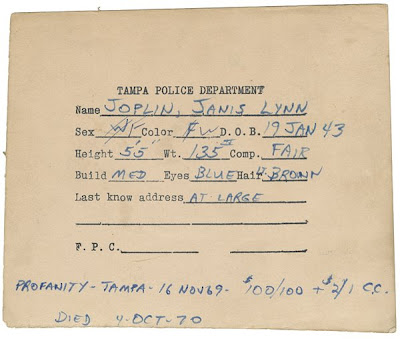 TAMPA POLICE DEPARTMENT
Name JOPLIN, JANIS LYNN
Sex Color W D.O.B. 19 JAN 43
Height 5'5" Wt. 135 Comp. FAIR
Build MED Eyes BLUE Hair BROWN
Last know address AT LARGE
F.P.C.
PROFANITY - TAMPA - 16 NOV 69 - $100/100 + $2/1 C.C.
DIED 4-OCT-70